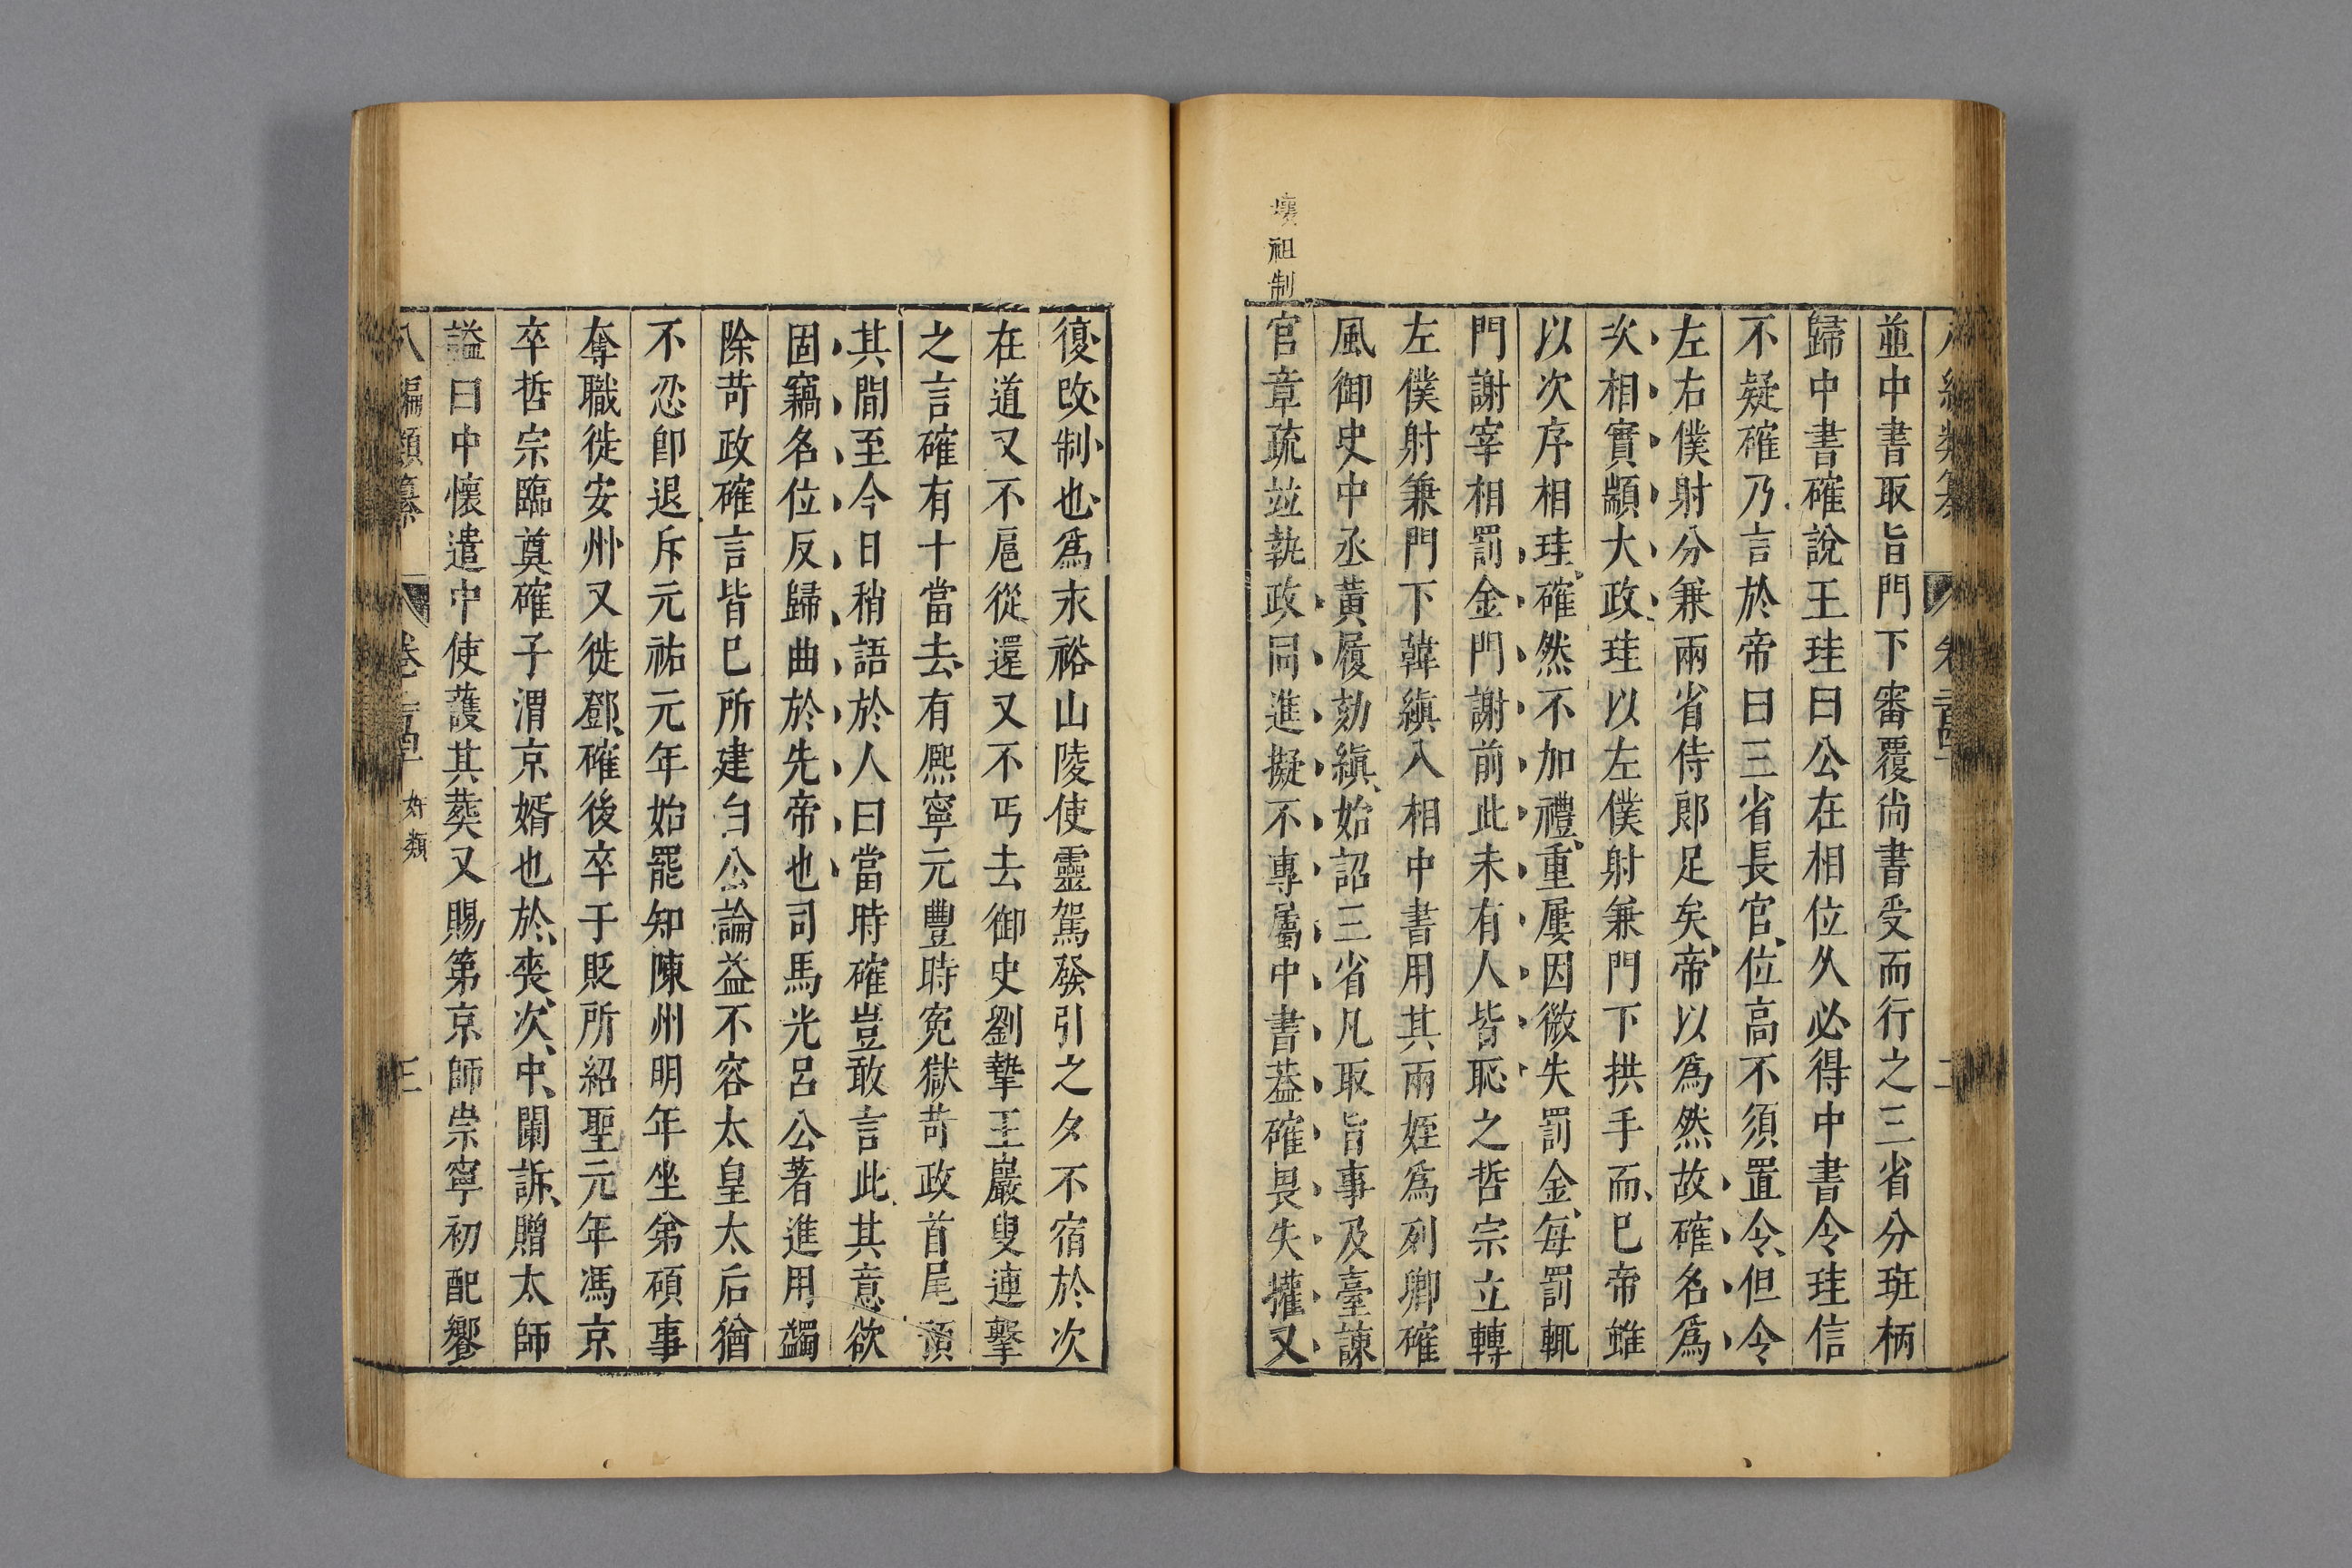 並中書取旨門下審覆尚書受而行之三省分班柄
歸中書確說王珪曰公在相位久必得中書令珪信
不疑確乃言於帝曰三省長官位高不須置令但令
左右僕射分兼兩省侍郎足矣帝以爲然故確名爲
次相實顓大政珪以左僕射兼門下拱手而已帝雖
以次序相珪確然不加禮重屢因微失罰金每罰輒
門謝宰相罰金門謝前此未有人皆恥之哲宗立轉
左僕射兼門下韓縝入相中書用其兩姪爲列卿確
風御史中丞黃履劾縝始詔三省凡取旨事及臺諫
壞祖制
官章疏竝執政同進擬不專屬中書葢確畏失權又
復改制也爲永裕山陵使靈駕發引之夕不宿於次
在道又不扈從還又不丐去御史劉摯王巖叟連擊
之言確有十當去有熈寧元豐時寃獄苛政首尾預
其間至今日稍語於人曰當時確豈敢言此其意欲
固竊名位反歸曲於先帝也司馬光呂公著進用蠲
除苛政確言皆已所建白公論益不容太皇太后猶
不忍卽退斥元祐元年始罷知陳州明年坐弟碩事
奪職徙安州又徙鄧確後卒于貶所紹聖元年馮京
卒哲宗臨奠確子渭京婿也於喪次中闌訴贈太師
謚曰中懷遣中使護其葬又賜第京師崇寧初配饗
八編類纂 卷 奸類 三